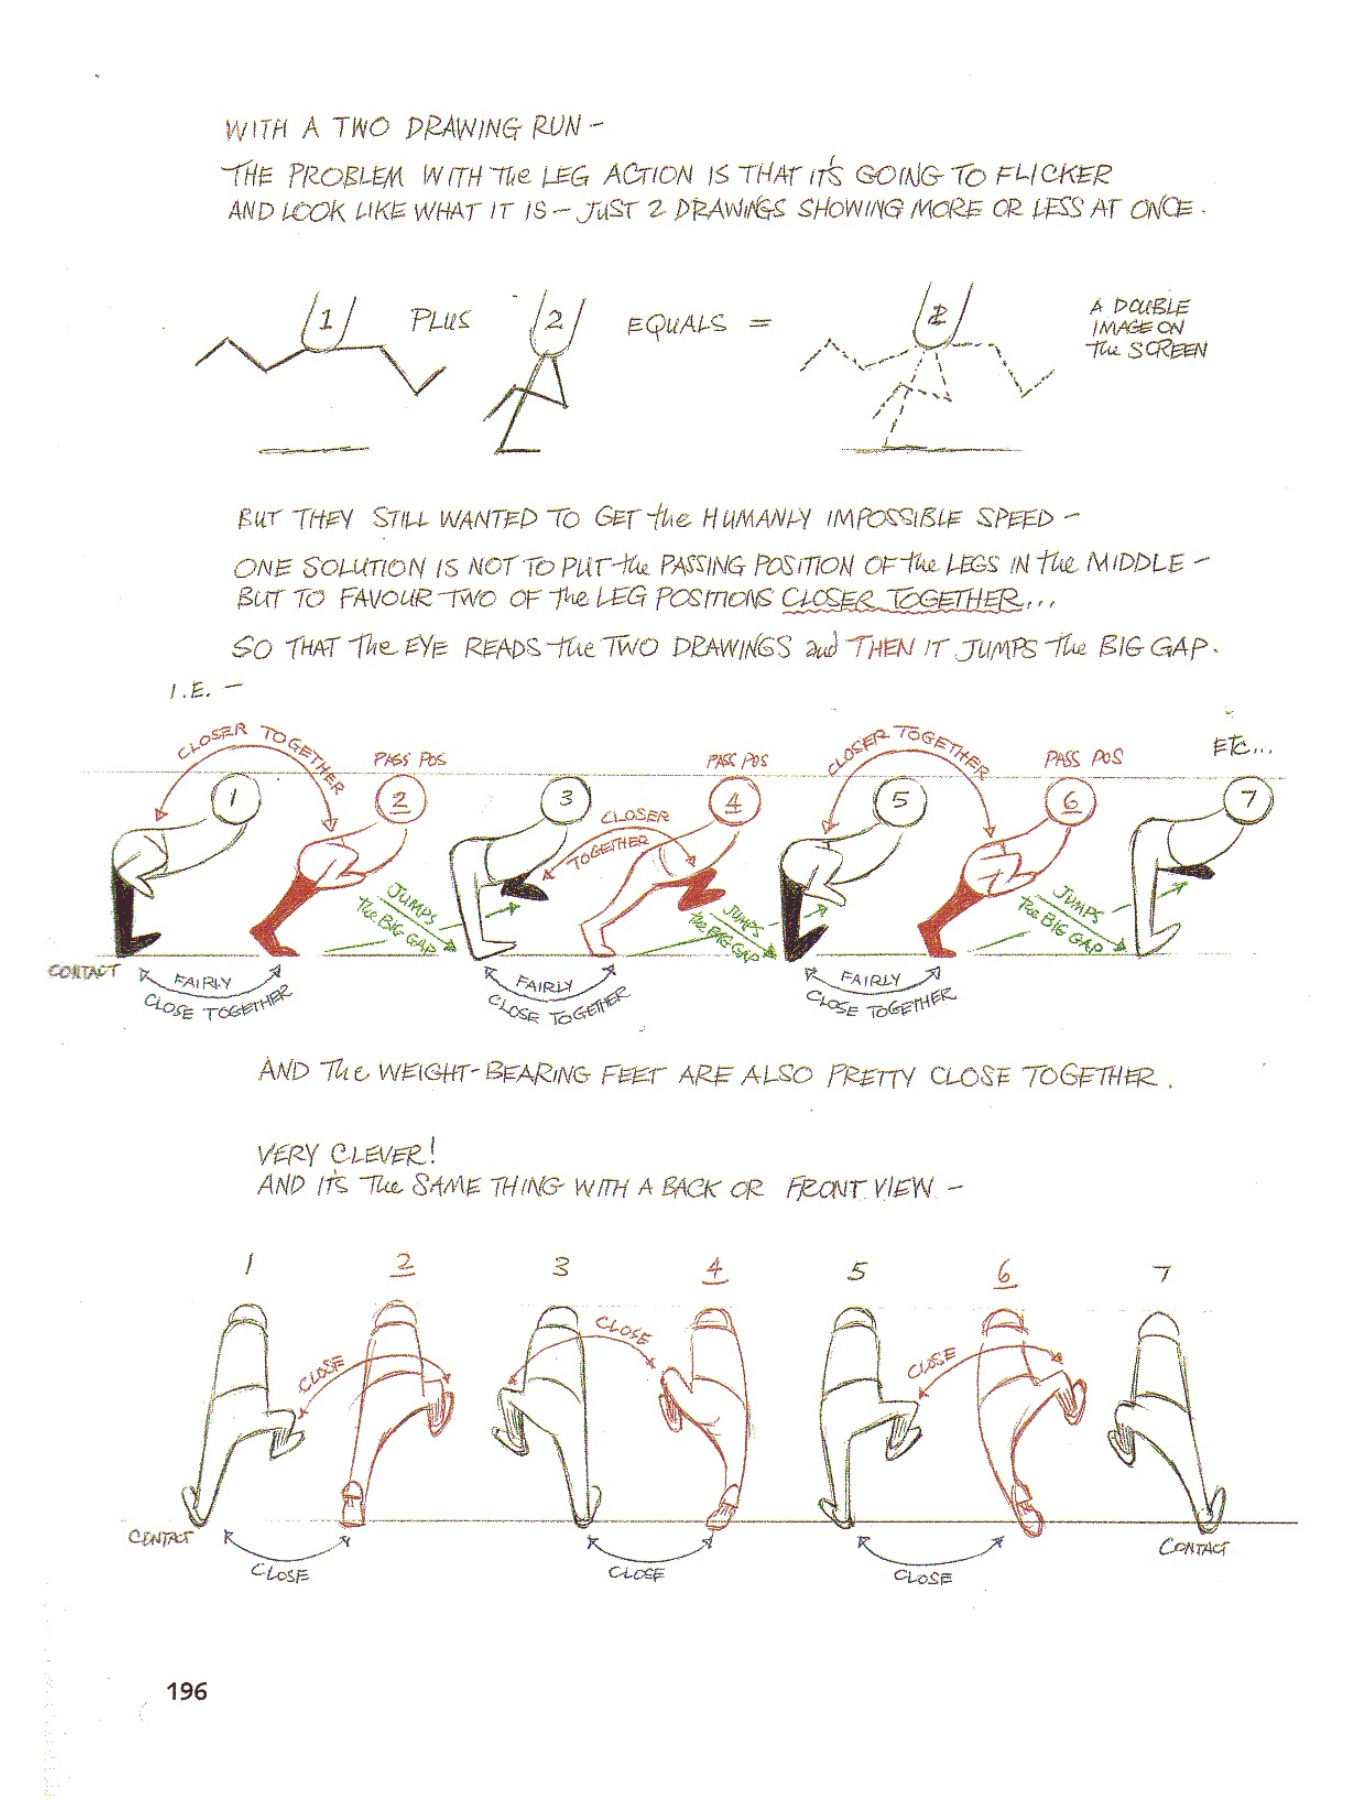 WITH A TWO DRAWING RUN –
THE PROBLEM WITH The LEG ACTION IS THAT IT'S GOING TO FLICKER
AND LOOK LIKE WHAT IT IS – JUST 2 DRAWINGS SHOWING MORE OR LESS AT ONCE.
1 PLUS 2 EQUALS =
A DOUBLE
IMAGE ON
The SCREEN
BUT THEY STILL WANTED TO GET the HUMANLY IMPOSSIBLE SPEED –
ONE SOLUTION IS NOT TO PUT the PASSING POSITION OF the LEGS IN the MIDDLE –
BUT TO FAVOUR TWO OF the LEG POSITIONS CLOSER TOGETHER...
SO THAT The EYE READS the TWO DRAWINGS and THEN IT JUMPS the BIG GAP.
I.E. –
CLOSER TOGETHER
PASS POS
PASS POS
CLOSER TOGETHER
PASS POS
ETC...
1 2 3 4 5 6 7
CLOSER
TOGETHER
JUMPS
the BIG GAP
JUMPS
the BIG GAP
JUMPS
the BIG GAP
CONTACT
FAIRLY
CLOSE TOGETHER
FAIRLY
CLOSE TOGETHER
FAIRLY
CLOSE TOGETHER
AND The WEIGHT-BEARING FEET ARE ALSO PRETTY CLOSE TOGETHER.
VERY CLEVER!
AND IT'S The SAME THING WITH A BACK OR FRONT VIEW –
1 2 3 4 5 6 7
CLOSE
CLOSE
CLOSE
CONTACT
CLOSE
CLOSE
CLOSE
CONTACT
196